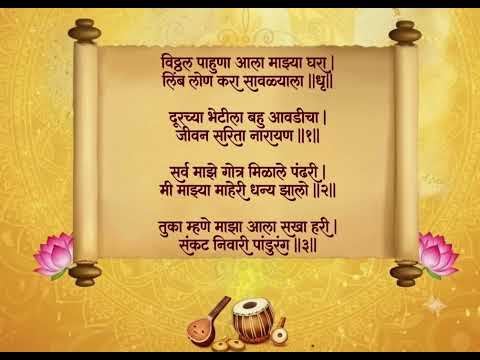 विठ्ठल पाहुणा आला माझ्या घरा |
लिंब लोण करा सावळ्याला ||धृ||
दूरच्या भेटीला बहु आवडीचा |
जीवन सरिता नारायण ||१||
सर्व माझे गोत्र मिळाले पंढरी |
मी माझ्या माहेरी धन्य झालो ||२||
तुका म्हणे माझा आला सखा हरी |
संकट निवारी पांडुरंग ||३||